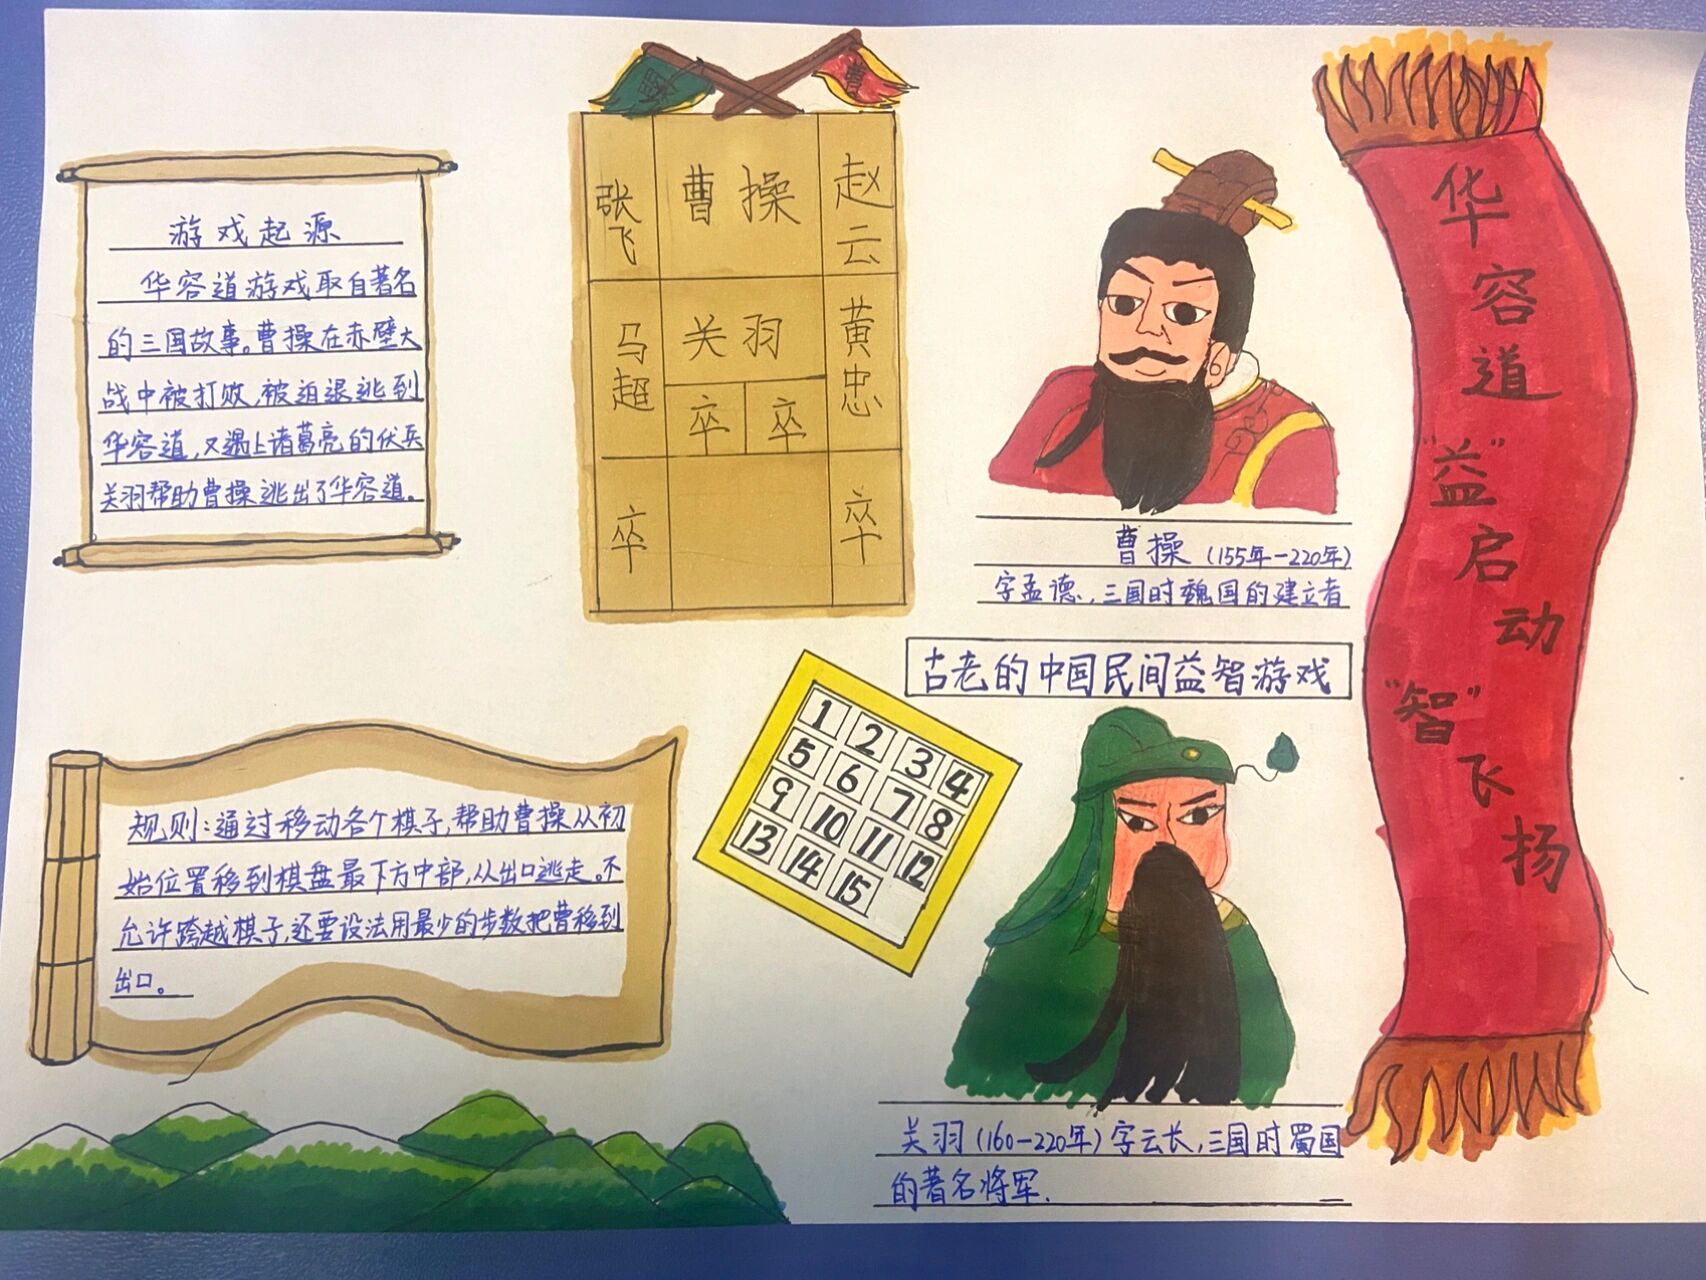 游戏起源
华容道游戏取自著名
的三国故事。曹操在赤壁大
战中被打败,被迫退逃到
华容道,又遇上诸葛亮的伏兵
关羽帮助曹操逃出了华容道。
曹
张飞
曹操
赵云
马超
关羽
黄忠
卒
卒
卒
卒
曹操(155年-220年)
字孟德,三国时魏国的建立者
古老的中国民间益智游戏
1 2 3 4
5 6 7 8
9 10 11 12
13 14 15
规则:通过移动各个棋子,帮助曹操从初
始位置移到棋盘最下方中部,从出口逃走。不
允许跨越棋子,还要设法用最少的步数把曹移到
出口。
关羽(160-220年)字云长,三国时蜀国
的著名将军.
华容道
"益"启动
"智"飞扬